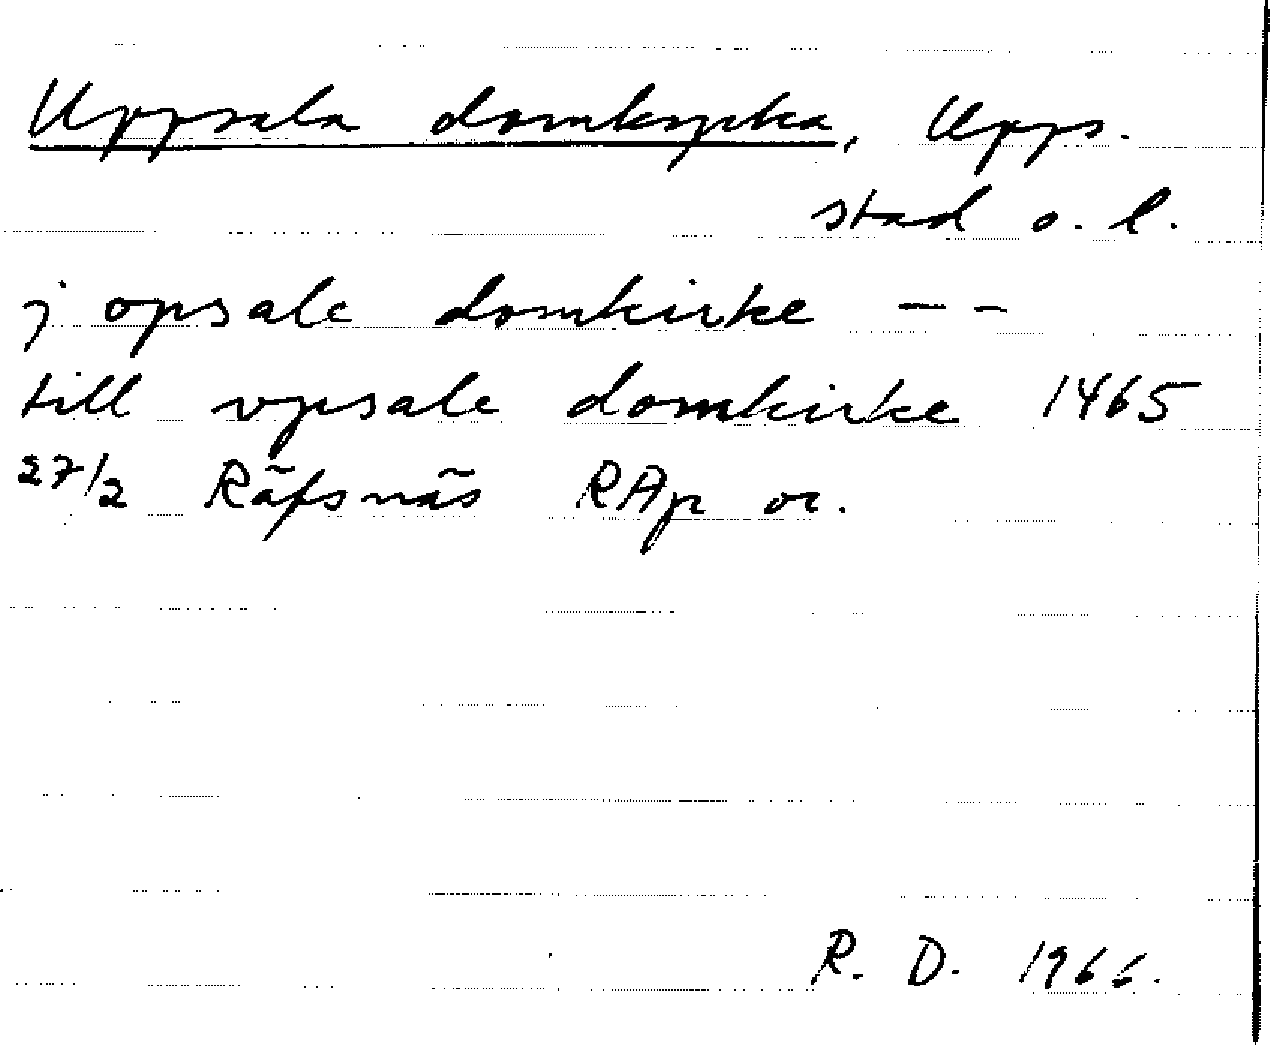 Uppsala domkyrka, Upps.
stad o. l.
j opsale domkirke - -
till vpsale domkirke 1465
27/2 Räfsnäs RAp or.
R. D. 1966.